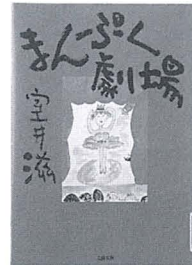 まんぷく
劇場
室井滋